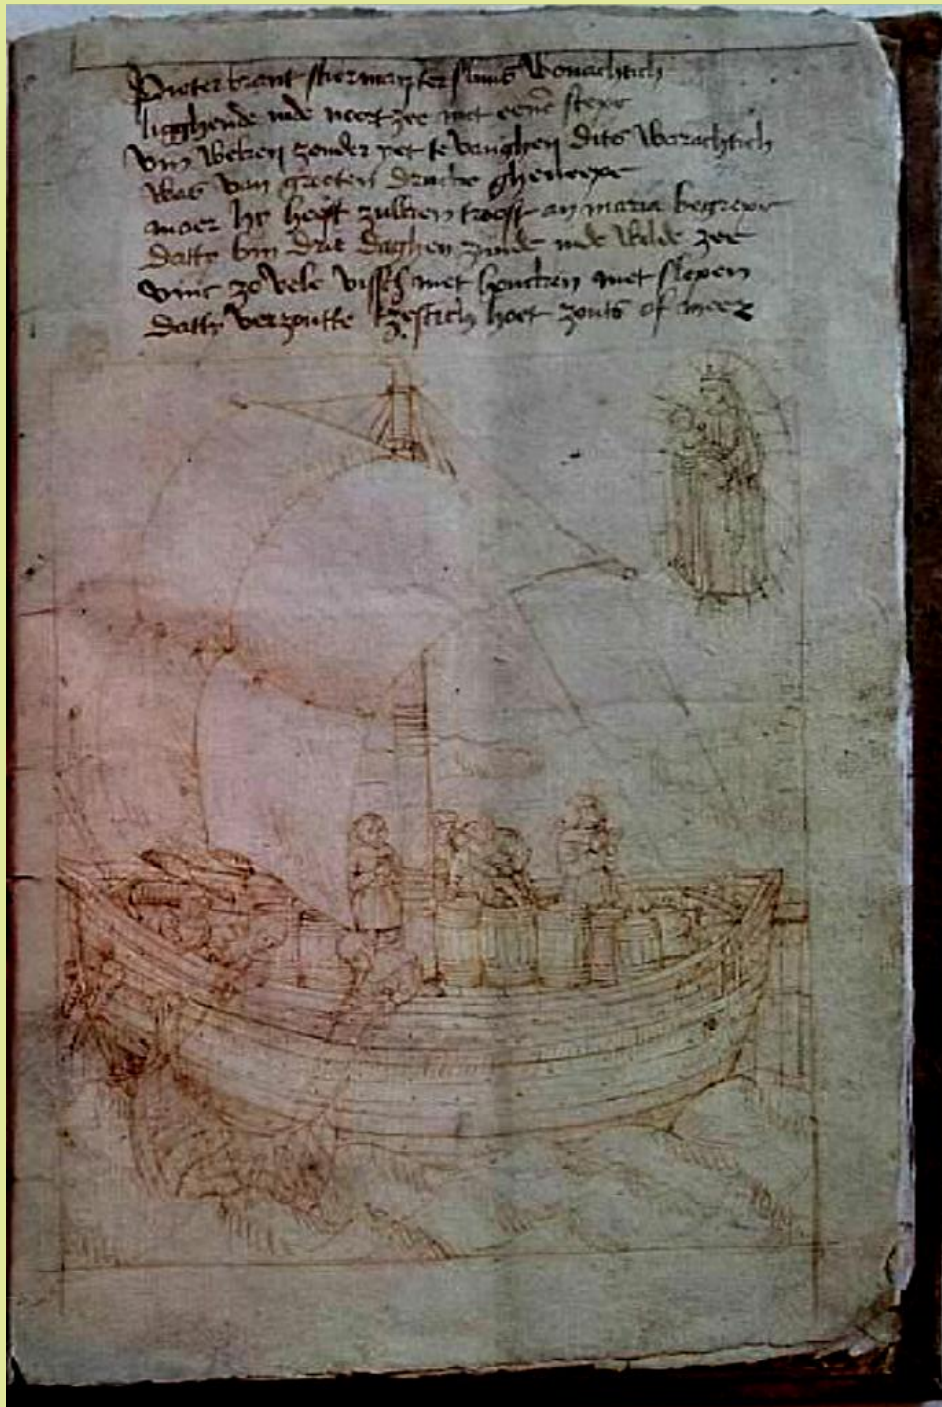 Pieter brant stierman ter sluus wonachtich
ligghende inde noort zee met eenē
viii weken zonder yet te vanghen dits warachtich
was van grooten drucke
maer hy heeft zulken troost an maria
datty bin drie daghen zinde inde wilde zee
vinc zo vele visch met houcken met slepen
datty verzoutte tzestich hoet zouts of meer